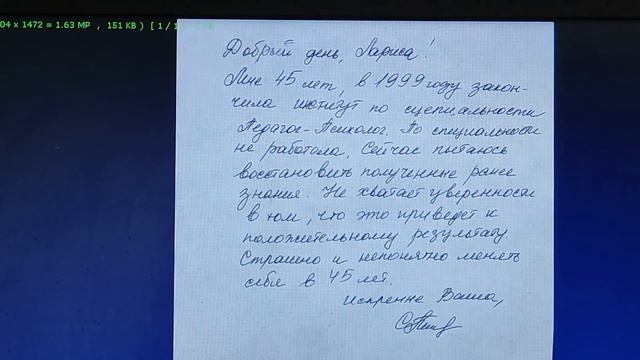 04 x 1472 = 1.63 MP , 151 KB ) [ 1 / 1
Добрый день, Лариса!
Мне 45 лет, в 1999 году закон-
чила институт по специальности
Педагог-Психолог. По специальности
не работала. Сейчас пытаюсь
восстановить полученные ранее
знания. Не хватает уверенности
в том, что это приведет к
положительному результату.
Страшно и непонятно менять
себя в 45 лет.
Искренне Ваша,